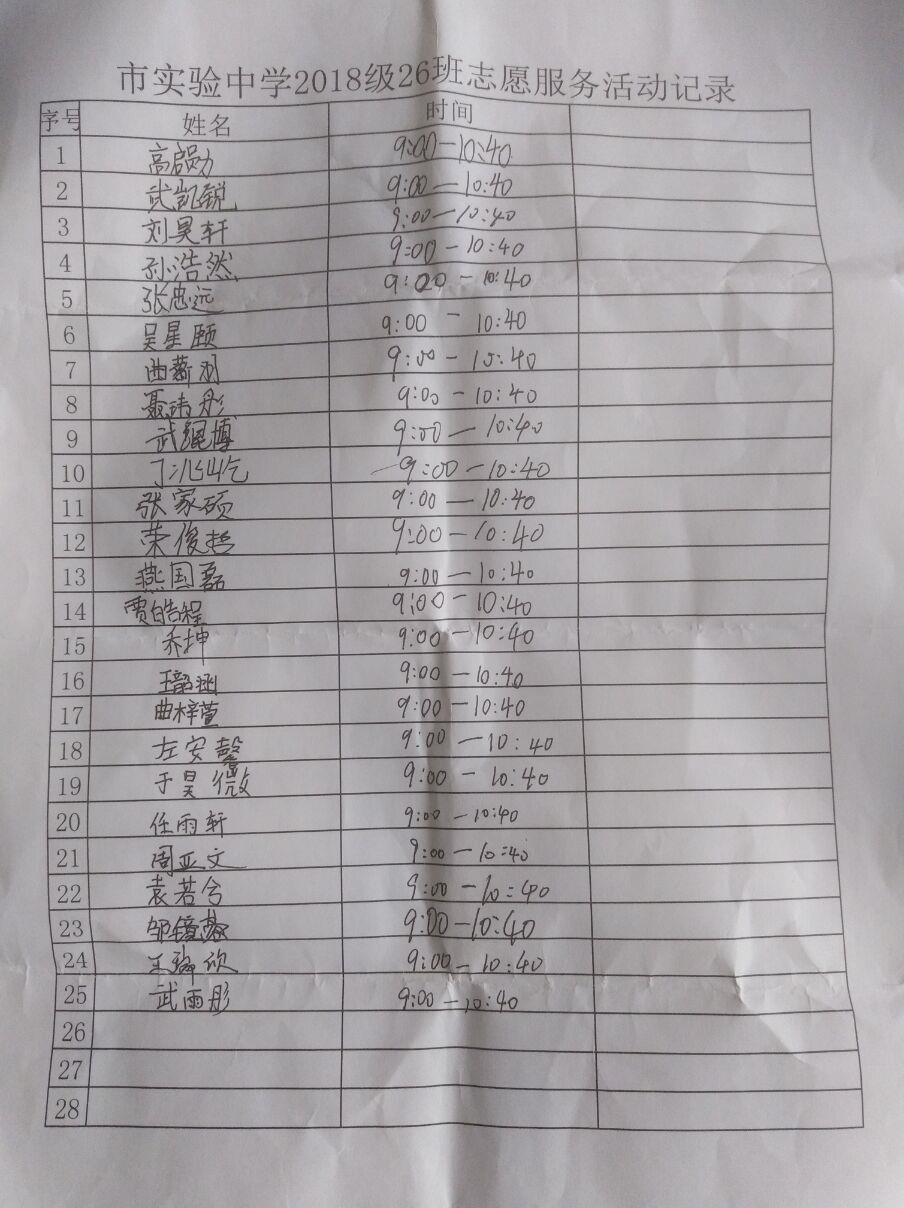 市实验中学2018级26班志愿服务活动记录
序号 姓名 时间
1 高启勋 9:00—10:40
2 武凯锐 9:00—10:40
3 刘昊轩 9:00—10:40
4 孙浩然 9:00—10:40
5 张忠远 9:00—10:40
6 吴星颐 9:00—10:40
7 曲薪羽 9:00—10:40
8 聂玮彤 9:00—10:40
9 武绳博 9:00—10:40
10 9:00—10:40
11 张家硕 9:00—10:40
12 荣俊哲 9:00—10:40
13 燕国磊 9:00—10:40
14 贾皓程 9:00—10:40
15 乔坤 9:00—10:40
16 王韶涵 9:00—10:40
17 曲梓萱 9:00—10:40
18 左安馨 9:00—10:40
19 于昊微 9:00—10:40
20 任雨轩 9:00—10:40
21 周亚文 9:00—10:40
22 袁若兮 9:00—10:40
23 9:00—10:40
24 9:00—10:40
25 武雨彤 9:00—10:40
26
27
28